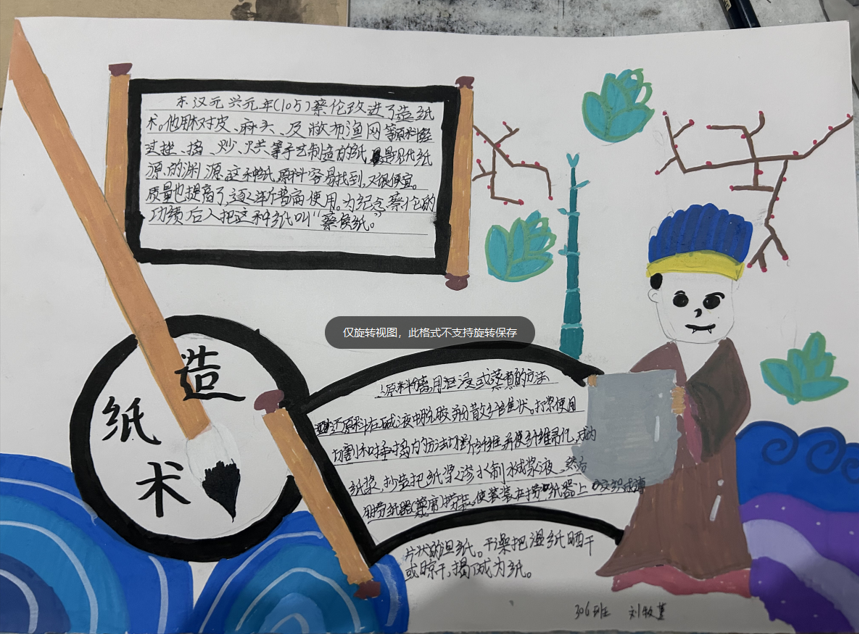 东汉元兴元年(105)蔡伦改进了造纸
术。他用树皮、麻头、及敝布渔网等原料经
过挫、捣、炒、烘等手艺制造的纸,是现代纸
源的渊源。这种纸原料容易找到,又很便宜。
质量也提高了,逐渐普高使用。为纪念蔡伦的
功绩,后人把这种纸叫“蔡侯纸”。
造
纸
术
仅旋转视图,此格式不支持旋转保存
原料分离用沤浸或蒸煮的方法
原料在碱液中脱胶并分散成纤维状。打浆使用
切割和捶捣的方法切断纤维
成为
纸浆。抄造把纸浆渗水制成浆液,然后
用
捞浆,使浆
在捞纸器上交织成薄
片状的湿纸。干燥把湿纸晒干
或晾干,揭
成为纸。
306班 刘牧